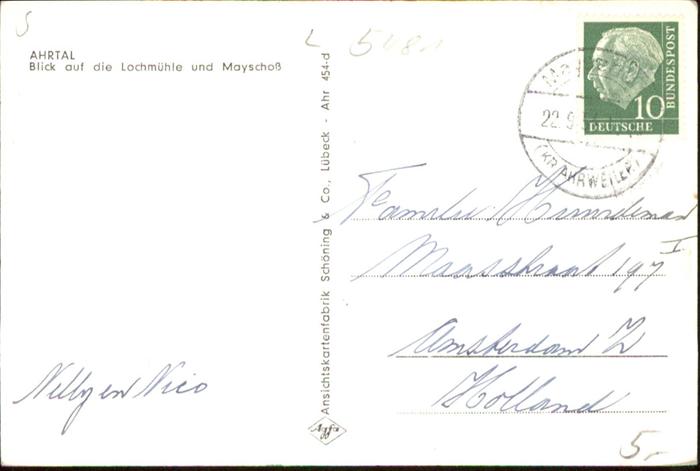 AHRTAL
Blick auf die Lochmühle und Mayschoß
Nelly en Nico
Ansichtskartenfabrik Schöning & Co., Lübeck - Ahr 454-d
Agfa
10
DEUTSCHE
BUNDESPOST
22.9
(KR. AHRWEILER)
Familie
Maasstraat 197 I
Amsterdam Z
Holland
5,-